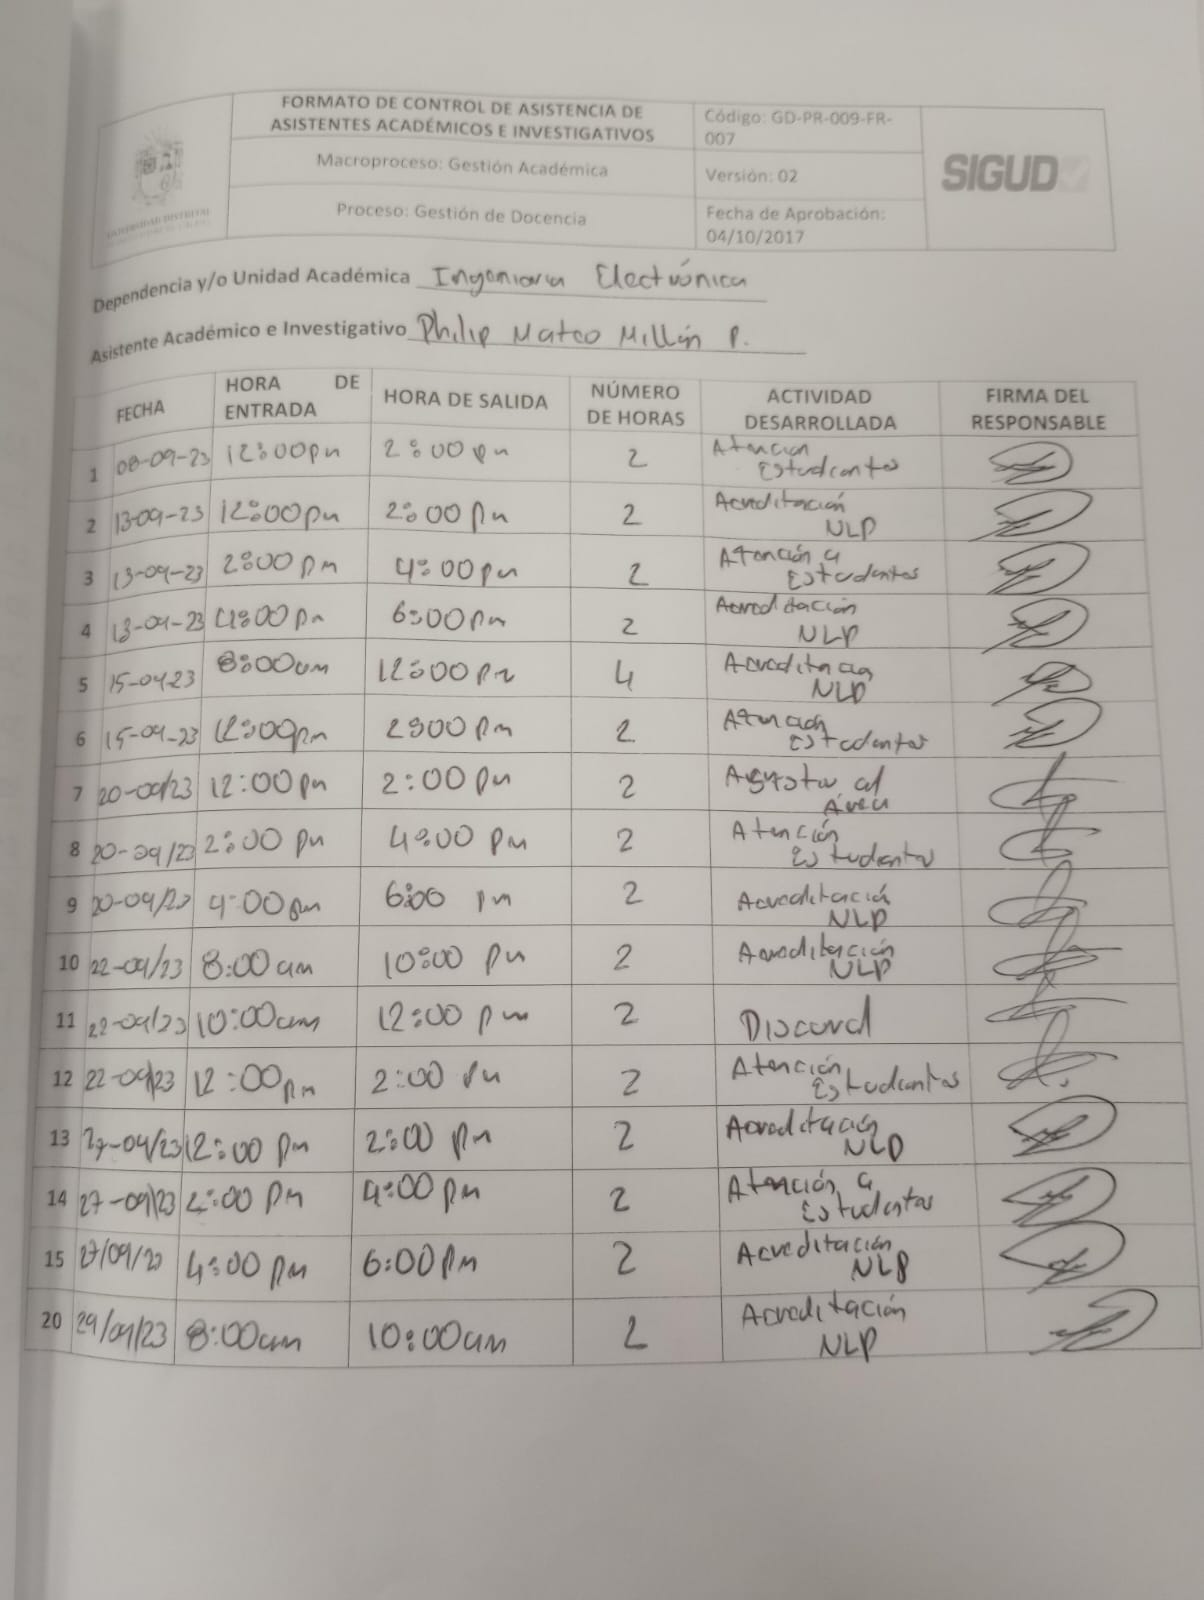 FORMATO DE CONTROL DE ASISTENCIA DE
ASISTENTES ACADÉMICOS E INVESTIGATIVOS
Código: GD-PR-009-FR-
007
Macroproceso: Gestión Académica
Versión: 02
Proceso: Gestión de Docencia
Fecha de Aprobación:
04/10/2017
SIGUD
UNIVERSIDAD DISTRITAL
Dependencia y/o Unidad Académica Ingenieria Electrónica
Asistente Académico e Investigativo Philip Mateo Millán P.
FECHA HORA DE ENTRADA HORA DE SALIDA NÚMERO DE HORAS ACTIVIDAD DESARROLLADA FIRMA DEL RESPONSABLE
1 08-09-23 12:00pm 2:00 pm 2 Atencion Estudiantes
2 13-09-23 12:00pm 2:00 pm 2 Acreditación NLP
3 13-09-23 2:00 pm 4:00 pm 2 Atención a Estudiantes
4 13-09-23 4:00 pm 6:00pm 2 Acreditación NLP
5 15-09-23 8:00am 12:00 pm 4 Acreditación NLP
6 15-09-23 12:00pm 2:00 pm 2 Atención Estudiantes
7 20-09/23 12:00 pm 2:00 pm 2 al Área
8 20-09/23 2:00 pm 4:00 pm 2 Atención Estudiantes
9 20-09/23 4:00pm 6:00 pm 2 Acreditación NLP
10 22-09/23 8:00am 10:00 pm 2 Acreditación NLP
11 22-09/23 10:00am 12:00 pm 2 Discord
12 22-09/23 12:00pm 2:00 pm 2 Atención Estudiantes
13 27-09/23 12:00 pm 2:00 pm 2 Acreditación NLP
14 27-09/23 2:00 pm 4:00 pm 2 Atención a Estudiantes
15 27/09/23 4:00 pm 6:00 pm 2 Acreditación NLP
20 29/09/23 8:00am 10:00am 2 Acreditación NLP